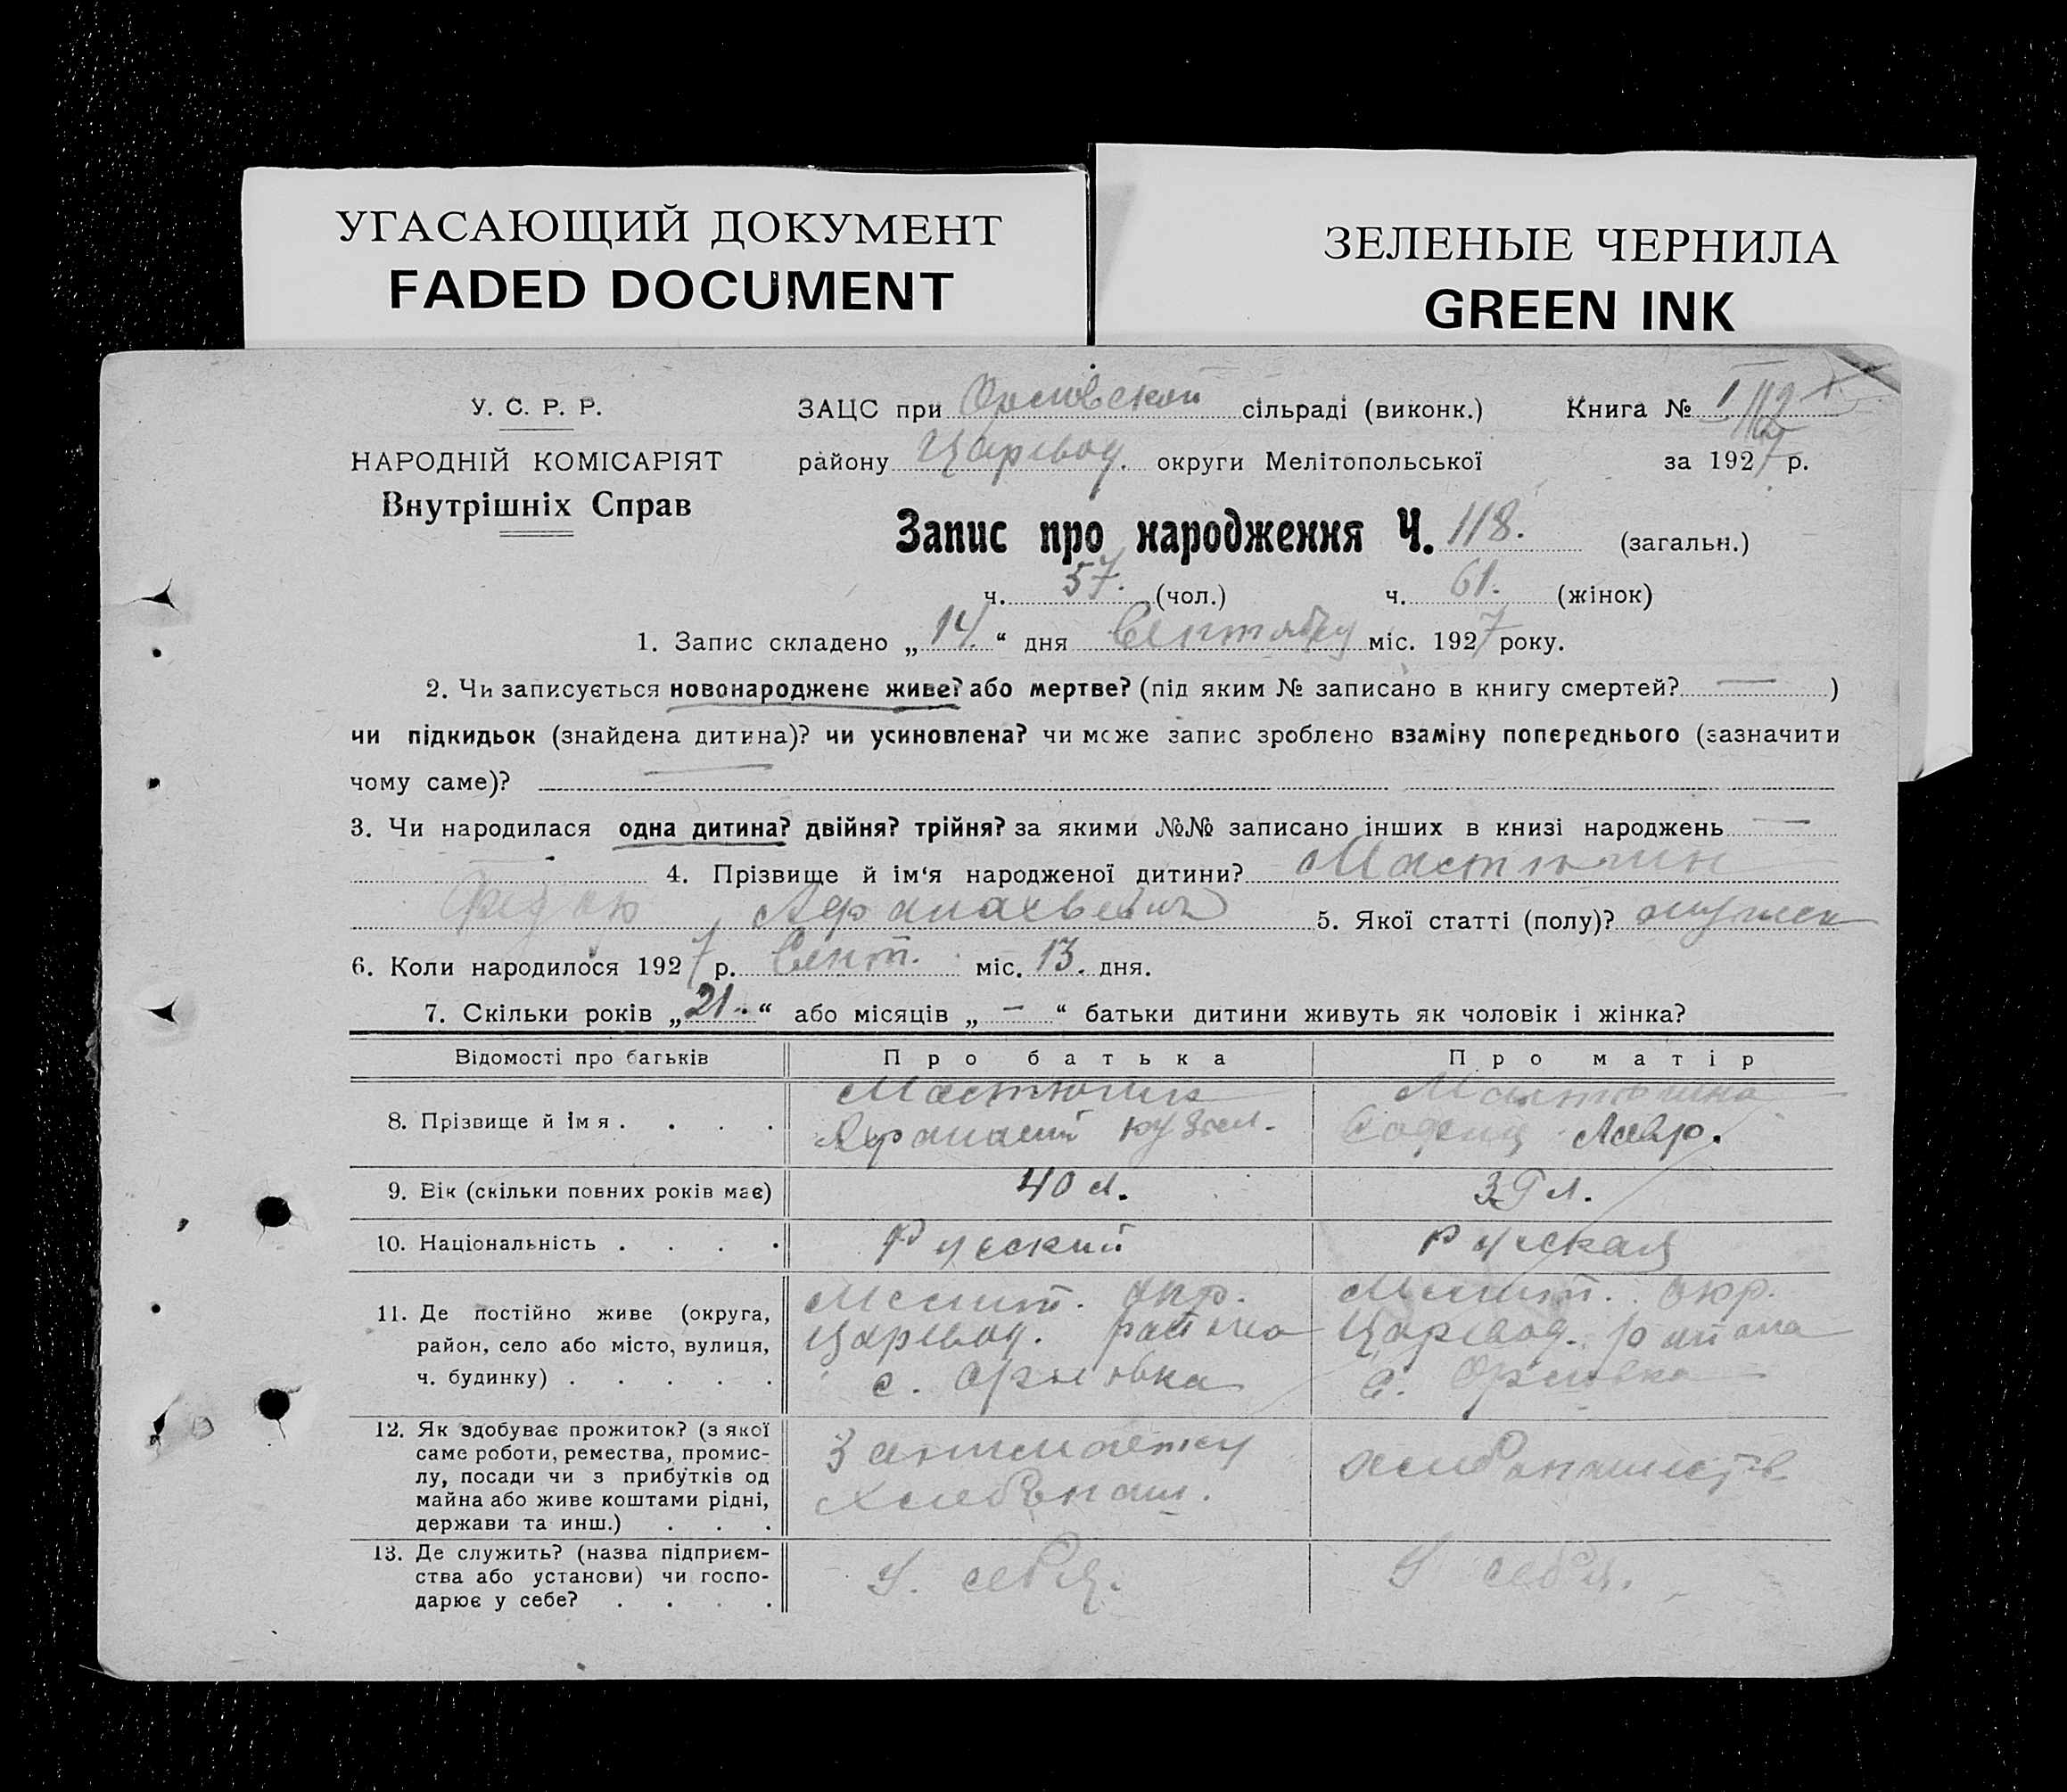 УГАСАЮЩИЙ ДОКУМЕНТ
FADED DOCUMENT
ЗЕЛЕНЫЕ ЧЕРНИЛА
GREEN INK
У. С. Р. Р.
НАРОДНІЙ КОМІСАРІЯТ
Внутрішніх Справ
ЗАЦС при Орловской сільраді (виконк.) Книга №
району Царевод. округи Мелітопольської за 1927 р.
Запис про народження Ч. 118. (загальн.)
ч. 57. (чол.) ч. 61. (жінок)
1. Запис складено „14.“ дня Сентября міс. 1927 року.
2. Чи записується новонароджене живе? або мертве? (під яким № записано в книгу смертей? — )
чи підкидьок (знайдена дитина)? чи усиновлена? чи може запис зроблено взаміну попереднього (зазначити
чому саме)? —
3. Чи народилася одна дитина? двійня? трійня? за якими №№ записано інших в книзі народжень —
— 4. Прізвище й ім‘я народженої дитини? Мастюгин
Федор 5. Якої статті (полу)? мужск
6. Коли народилося 1927 р. Сент. міс. 13. дня.
7. Скільки років „21.“ або місяців „—“ батьки дитини живуть як чоловік і жінка?
Відомості про батьків Про батька Про матір
8. Прізвище й ім я . . . .
Афанасий Кузьм. Лавр.
9. Вік (скільки повних років має) 40 л. 39 л.
10. Національність . . . . Русский Русская
11. Де постійно живе (округа, Мелит. Окр. Мелит. Окр.
район, село або місто, вулиця, Царевод. района Царевод. района
ч. будинку) . . . . . с. Орловка с. Орловка
12. Як здобуває прожиток? (з якої
саме роботи, ремества, промис-
лу, посади чи з прибутків од
майна або живе коштами рідні,
держави та инш.) . . .
Хлебопаш.
13. Де служить? (назва підприєм-
ства або установи) чи госпо-
дарює у себе? . . . .
У себя. У себя.